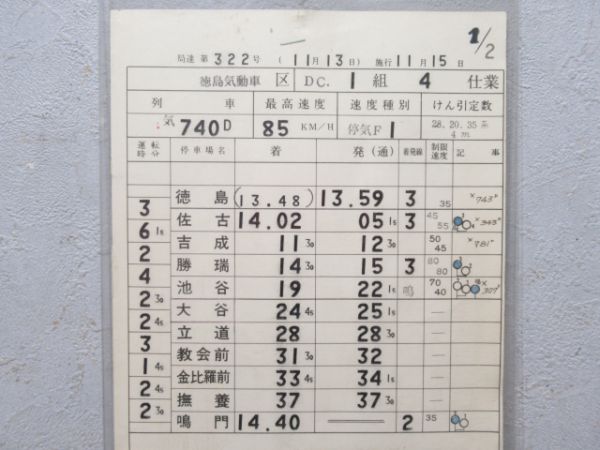 1/2
局達第322号 (11月13日) 施行11月15日
徳島気動車 区 DC. 1 組 4 仕業
列 車 最高速度 速度種別 けん引定数
気 740D 85 KM/H 停気F 1 28. 20. 35 系 4 m
運転時分 停車場名 着 発(通) 着発線 制限速度 記事
徳島 (13.48) 13.59 3 35 ×743D
3
佐古 14.02 05 1s 3 45 55 ×343D
6 1s
吉成 11 30 12 30 50 45 ×781D
2
勝瑞 14 30 15 3 80 80
4
池谷 19 22 1s 鳴 70 40
2 30
大谷 24 4s 25 1s —
2 4s
立道 28 28 30 —
3
教会前 31 30 32 —
1 4s
金比羅前 33 4s 34 1s —
2 4s
撫養 37 37 30 —
2 30
鳴門 14.40 — 2 35